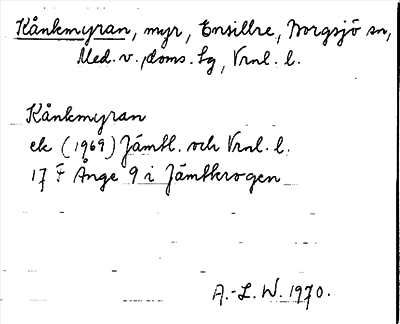 Kånkmyran, myr, Ensillre, Borgsjö sn,
Med. v. doms. lg, Vrnl. l.
Kånkmyran
ek (1969) Jämtl. och Vrnl. l.
17 F Ånge 9 i Jämtkrogen
A.-L. W. 1970.